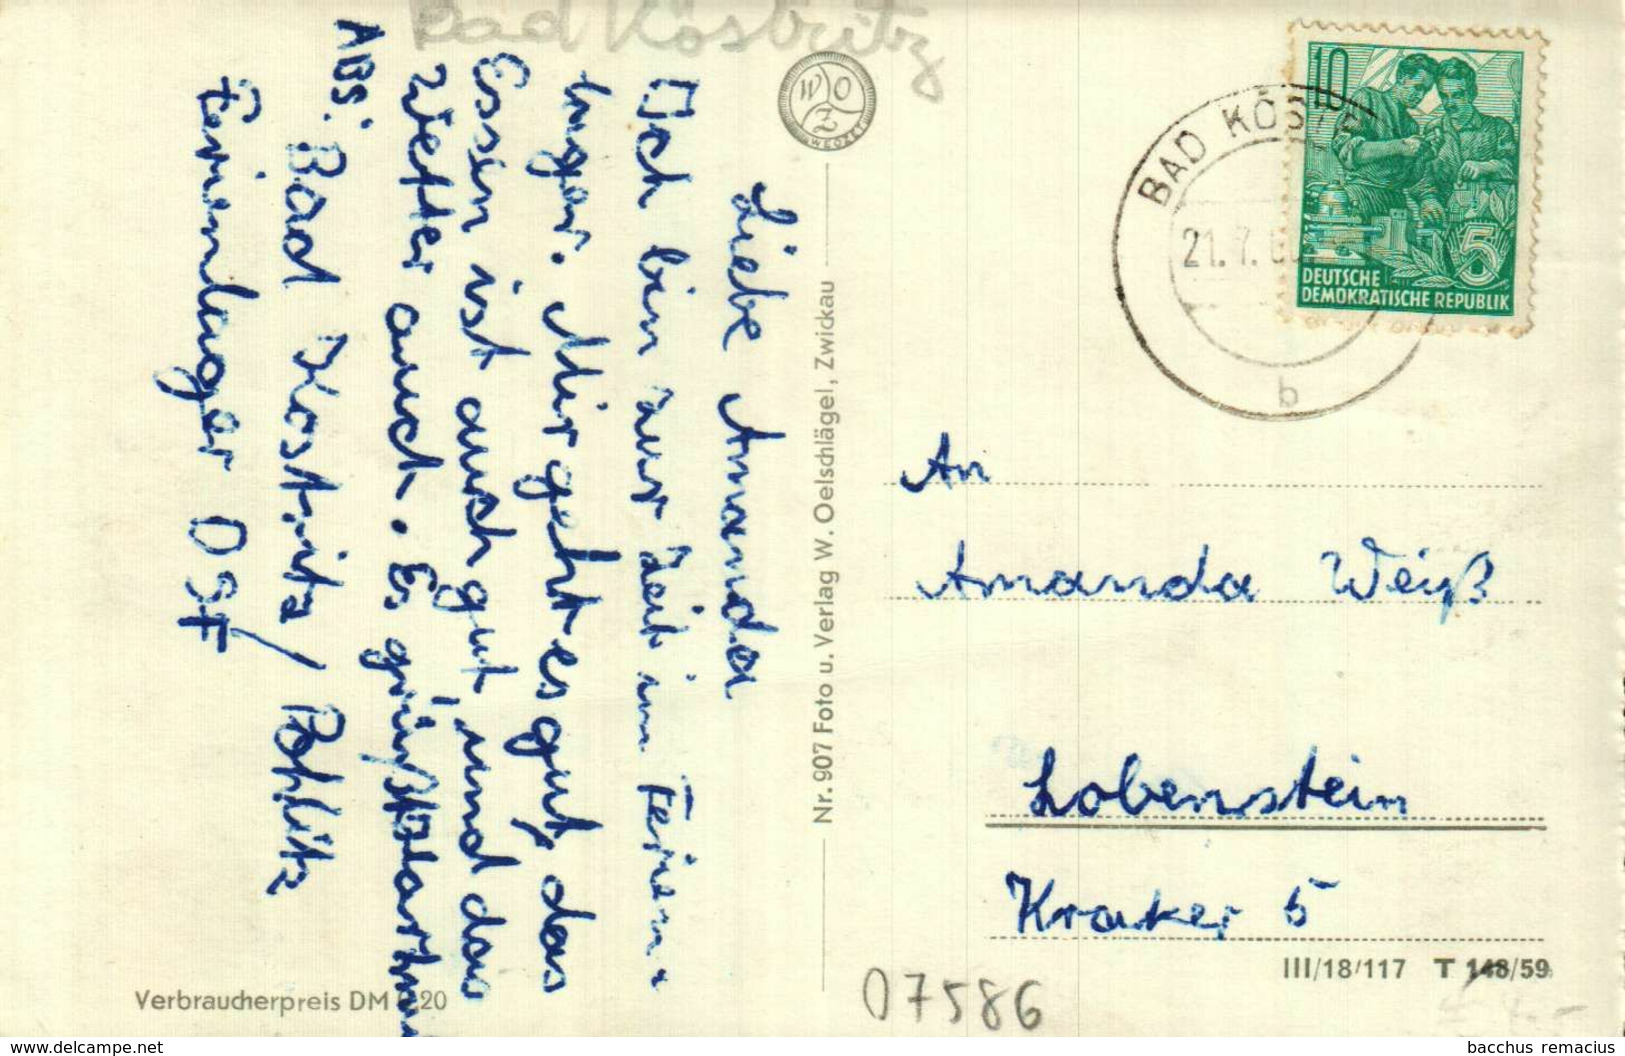 Bad Köstritz
Liebe Amanda
Ich bin zur Zeit im Ferien-
lager. Mir geht es gut, das
Essen ist auch gut und das
Wetter auch. Es grüßt
ABS: Bad Kostritz / Pohlitz
Ferienlager DSF
W O Z
WEOZET
Nr. 907 Foto u. Verlag W. Oelschlägel, Zwickau
Verbraucherpreis DM 0,20
BAD KÖST
21. 7. 6
b
10
5
DEUTSCHE
DEMOKRATISCHE REPUBLIK
An
Amanda Weiß
Lobenstein
Kraker 5
III/18/117 T 148/59
07586
bacchus remacius